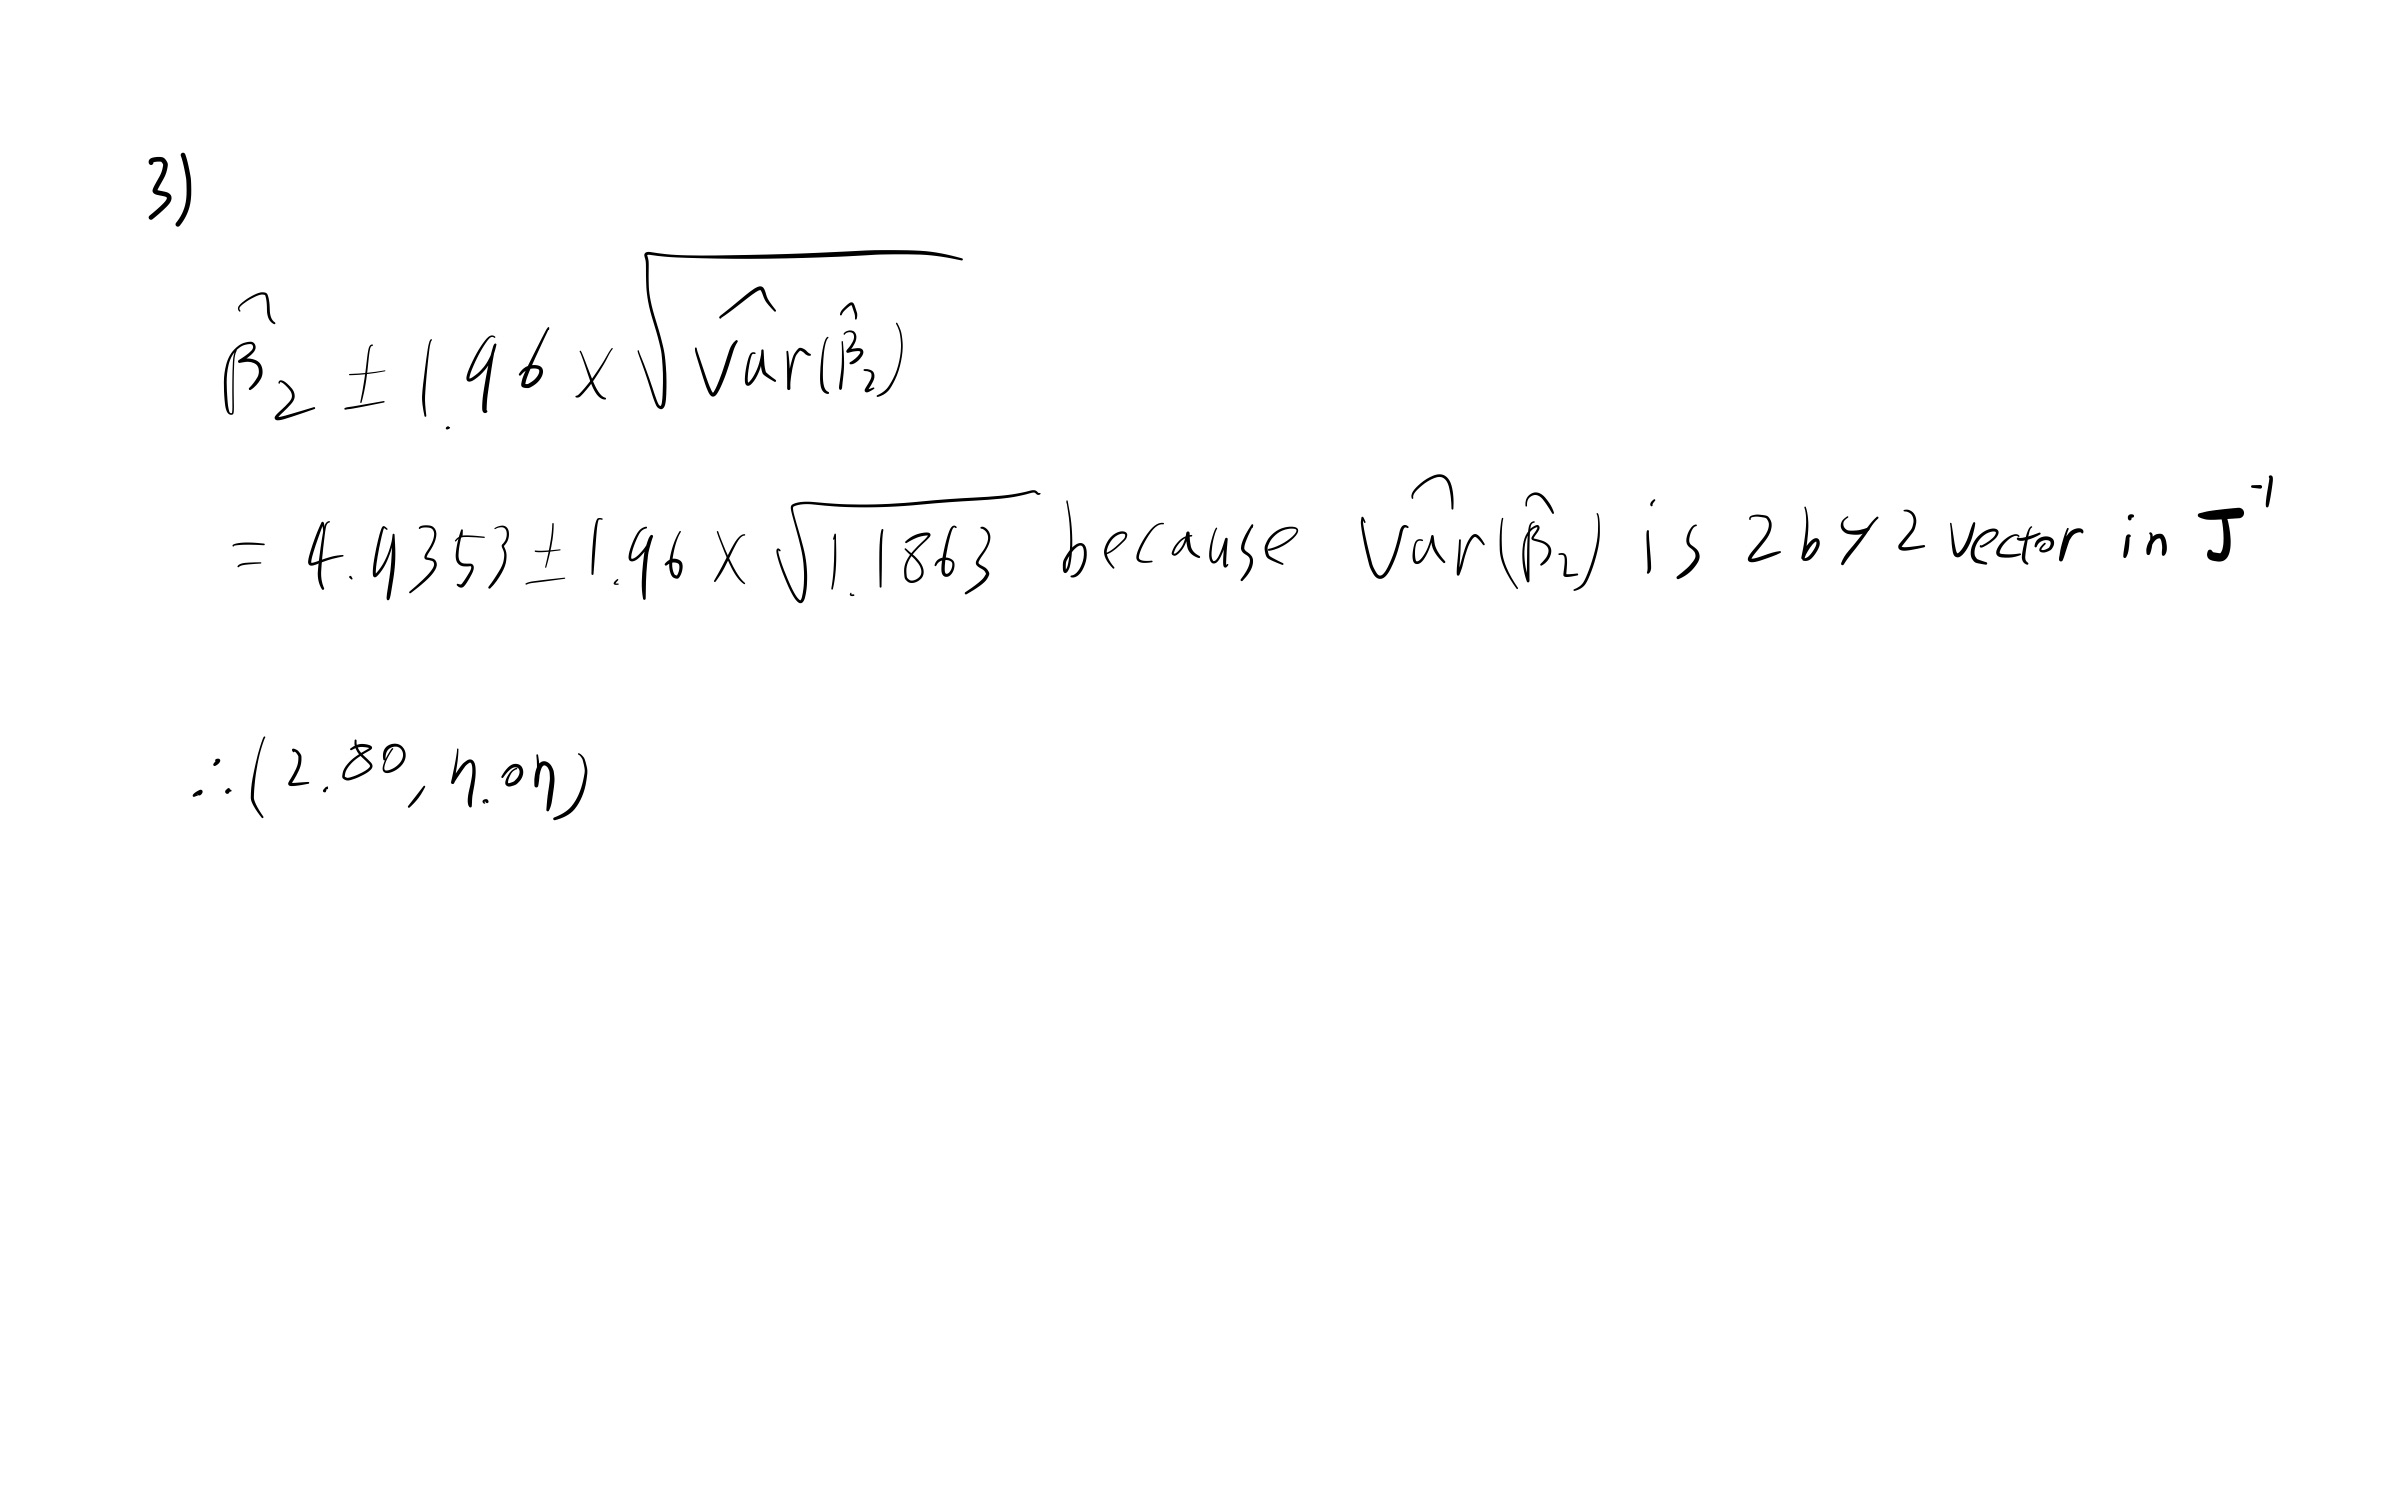 3)
β̂₂ ± 1.96 × √V̂ar(β̂₂)
= 4.9353 ± 1.96 × √1.1863 because V̂ar(β̂₂) is 2by2 vector in J⁻¹
∴ (2.80, 7.07)